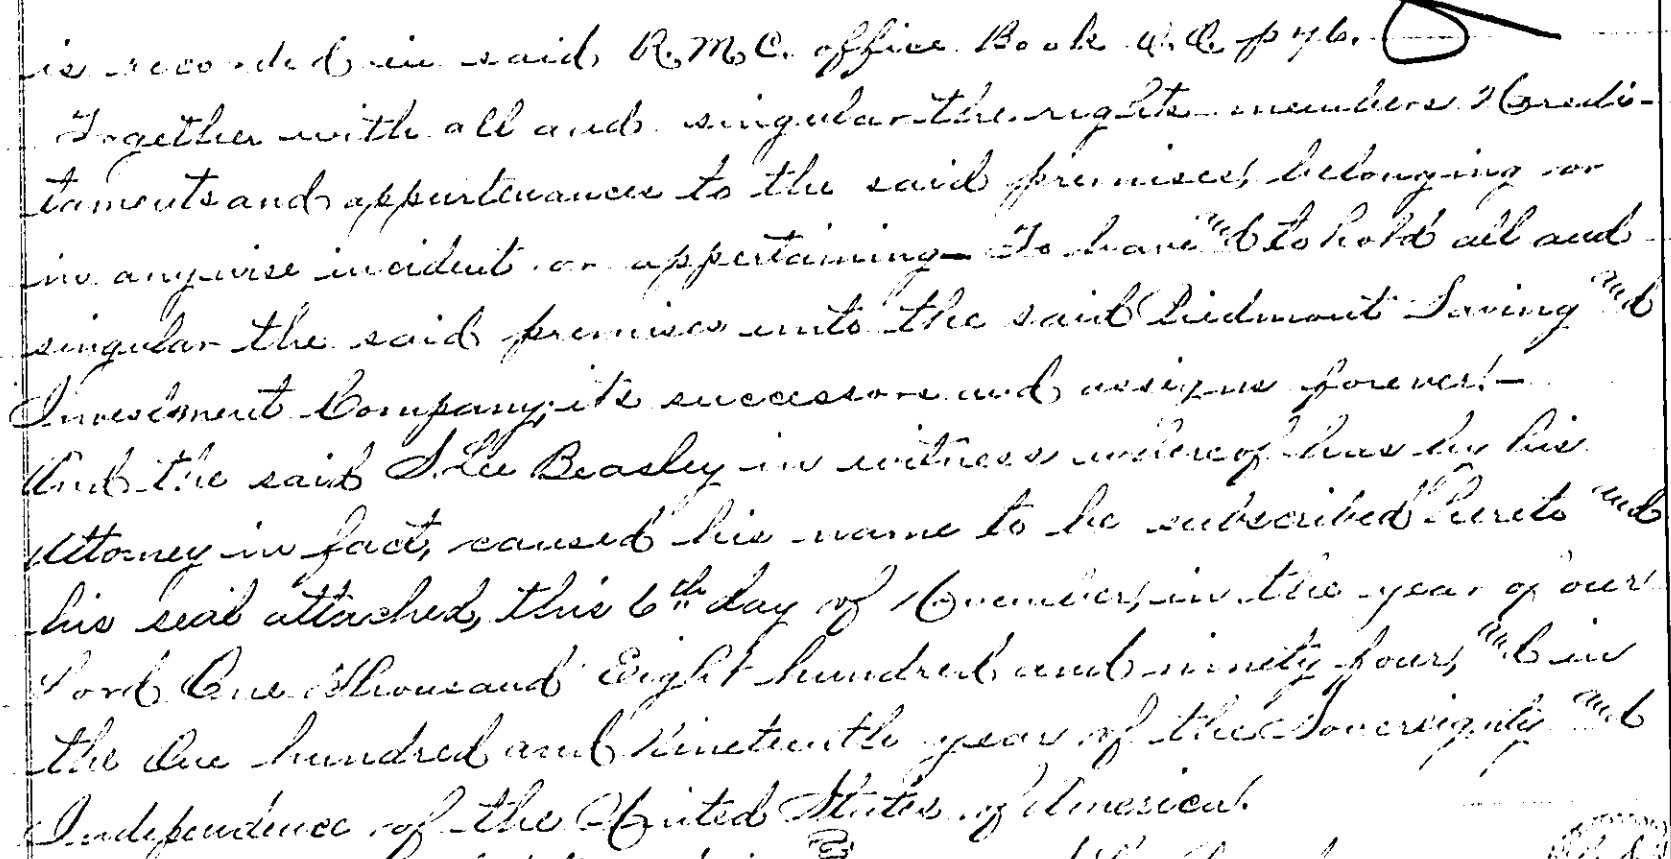 is recorded in said R.M.C. office Book Q.Q. p 76.
Together with all and singular the rights members Heredi-
taments and appurtenances to the said premises, belonging or
in anywise incident or appertaining - To have and to hold all and
singular the said premises unto the said Piedmont Saving and
Investment Company, its successors and assigns forever. -
And the said S. Lee Beasley in witness whereof has by his
Attorney in fact, caused his name to be subscribed hereto and
his seal attached, this 6th day of November, in the year of our
Lord One Thousand Eight hundred and ninety four, and in
the One hundred and Nineteenth year of the Sovereignty and
Independence of the United States of America.